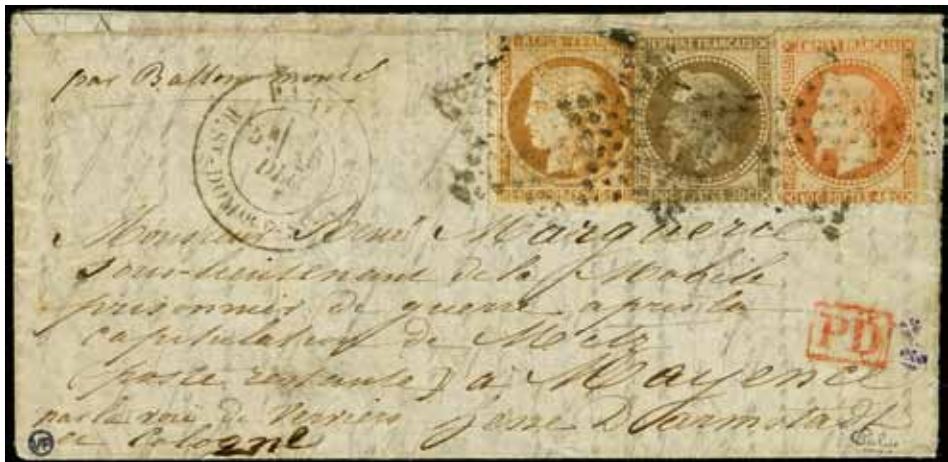 par Ballon monté
DEC
EMPIRE FRANÇAIS
EMPIRE FRANÇAIS
Monsieur René Marguerie
Sous-lieutenant de la Mobile
prisonnier de guerre après la
capitulation de Metz
PD
(poste restante) à Mayence
par la voie de Verviers
Hesse Darmstadt
et Cologne